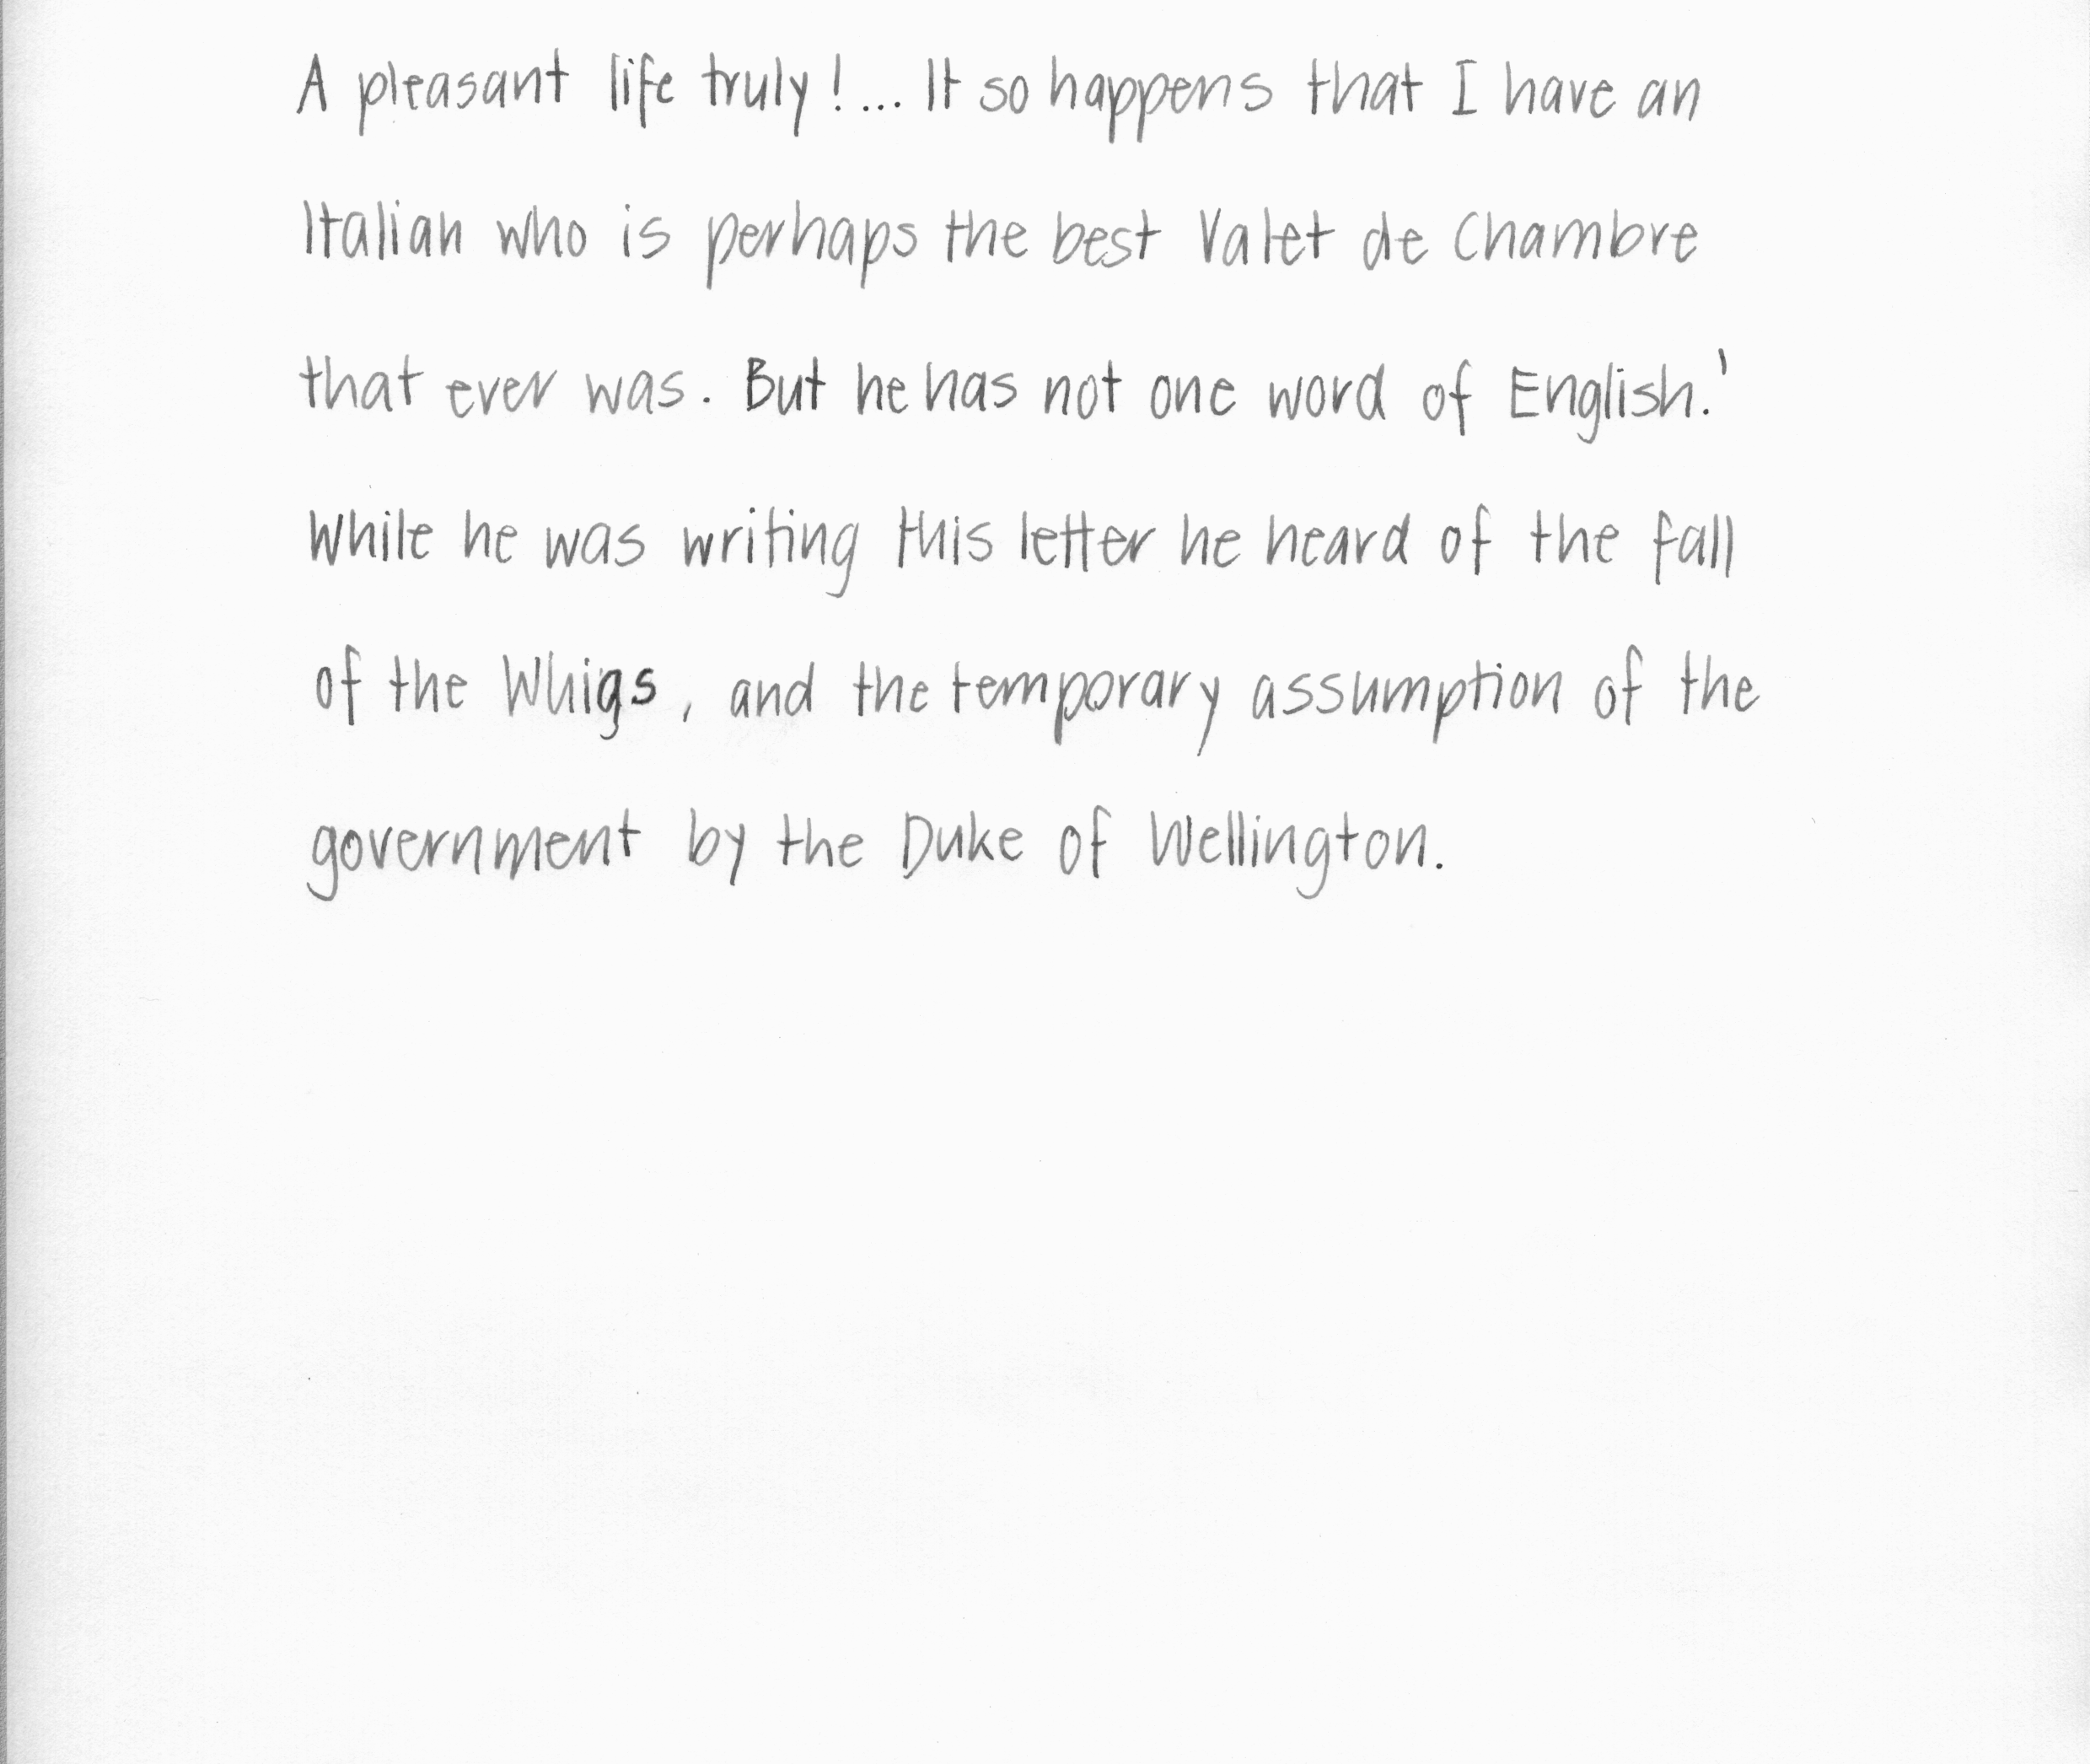 A pleasant life truly!... It so happens that I have an
Italian who is perhaps the best Valet de Chambre
that ever was. But he has not one word of English.'
While he was writing this letter he heard of the fall
of the Whigs, and the temporary assumption of the
government by the Duke of Wellington.